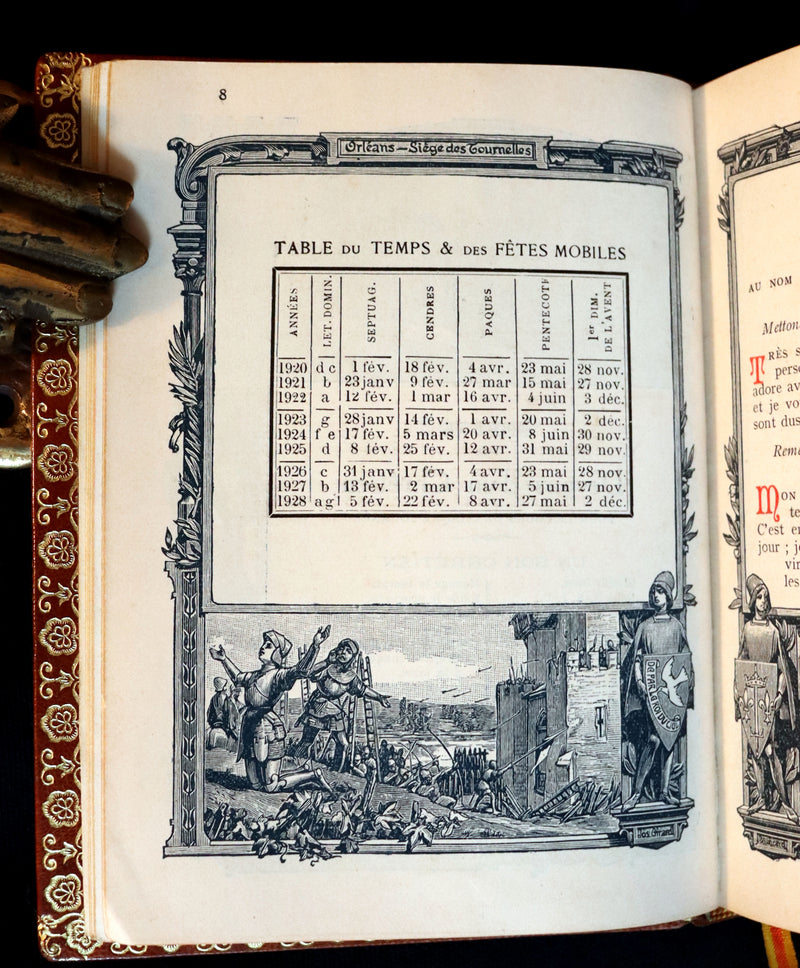 8
Orléans — Siège des Tournelles
TABLE DU TEMPS & DES FÊTES MOBILES
ANNÉES LET. DOMIN. SEPTUAG. CENDRES PAQUES PENTECOTE 1er DIM. DE L'AVENT
1920 d c 1 fév. 18 fév. 4 avr. 23 mai 28 nov.
1921 b 23 janv 9 fév. 27 mar 15 mai 27 nov.
1922 a 12 fév. 1 mar 16 avr. 4 juin 3 déc.
1923 g 28 janv 14 fév. 1 avr. 20 mai 2 déc.
1924 f e 17 fév. 5 mars 20 avr. 8 juin 30 nov.
1925 d 8 fév. 25 fév. 12 avr. 31 mai 29 nov.
1926 c 31 janv 17 fév. 4 avr. 23 mai 28 nov.
1927 b 13 fév. 2 mar 17 avr. 5 juin 27 nov.
1928 a g 5 fév. 22 fév. 8 avr. 27 mai 2 déc.
DE PAR LE ROY DU
Jos. Girard
AU NOM
Metton
TRÈS s
pers
adore av
et je vo
sont dus
Reme
MON
te
C'est en
jour ; je
vin
les